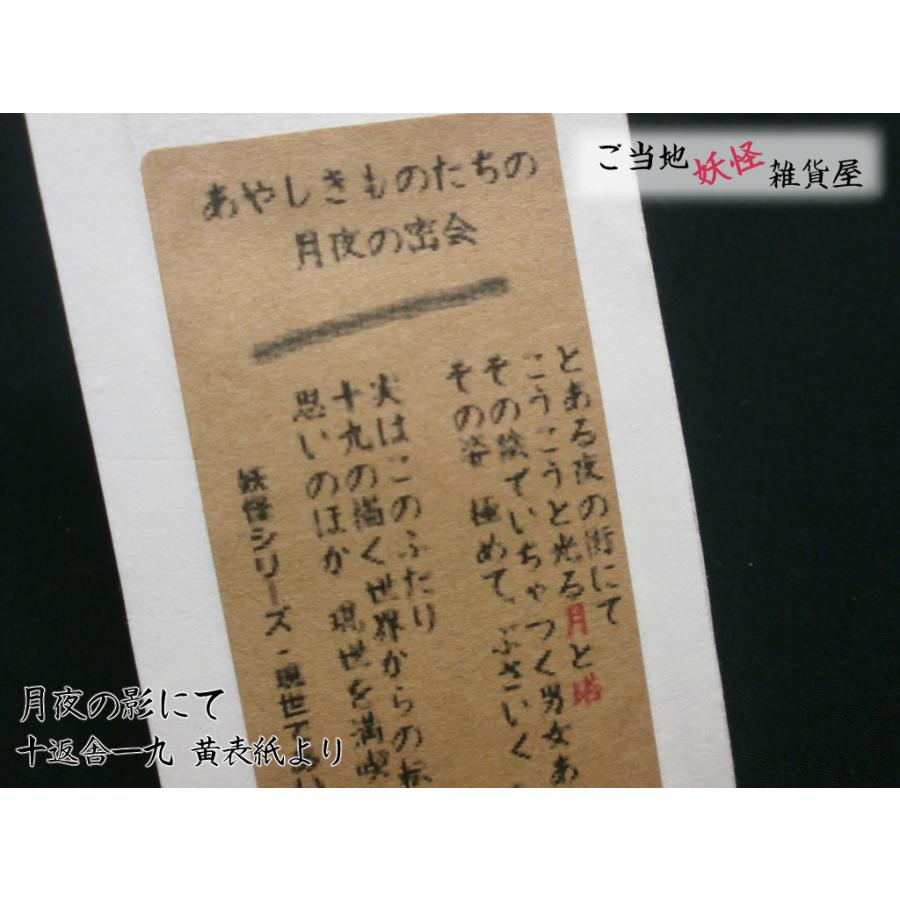 ご当地妖怪雑貨屋
あやしきものたちの
月夜の密会
とある夜の街にて
こうこうと光る月と塔
その陰でいちゃつく男女あ
その姿 極めて、ぶさいく
実はこのふたり
十九の描く世界からの転
思いのほか 現世を満喫
妖怪シリーズ・現世
月夜の影にて
十返舎一九 黄表紙より